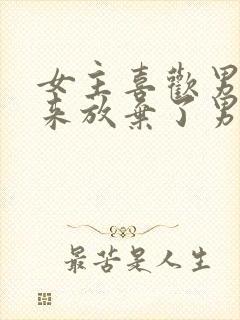 女主喜歡男
来放棄了男
最苦是人生